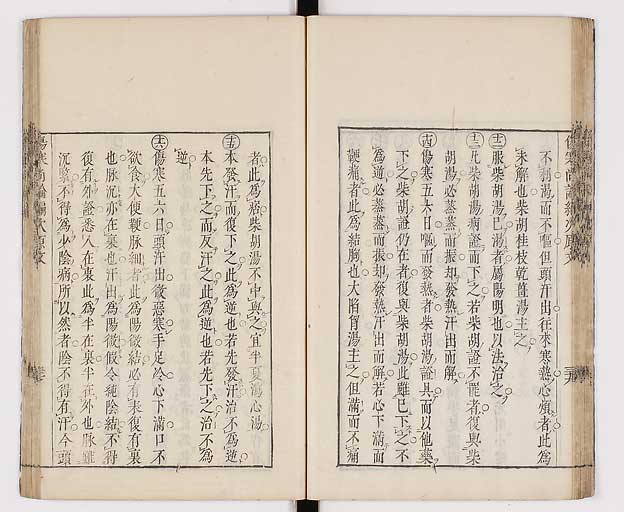 不利渴而不嘔但頭汗出往來寒熱心煩者此爲
未解也柴胡桂枝乾薑湯主之
服柴胡湯已渴者屬陽明也以法治之
凡柴胡湯病證而下之若柴胡證不罷者復與柴
胡湯必蒸蒸而振却發熱汗出而解
傷寒五六日嘔而發熱者柴胡湯證具而以他藥
下之柴胡證仍在者復與柴胡湯此雖已下之不
爲逆必蒸蒸而振却發熱汗出而解若心下滿而
鞕痛者此爲結胸也大陷胷湯主之但滿而不痛
者此爲痞柴胡湯不中與之宜半夏瀉心湯
本發汗而復下之此爲逆也若先發汗治不爲逆
本先下之而反汗之此爲逆也若先下之治不爲
逆
傷寒五六日頭汗出微惡寒手足冷心下滿口不
欲食大便鞕脉細者此爲陽微結必有表復有裏
也脉沉亦在裏也汗出爲陽微假令純陰結不得
復有外證悉入在裏此爲半在裏半在外也脉雖
沉緊不得爲少陰病所以然者陰不得有汗今頭